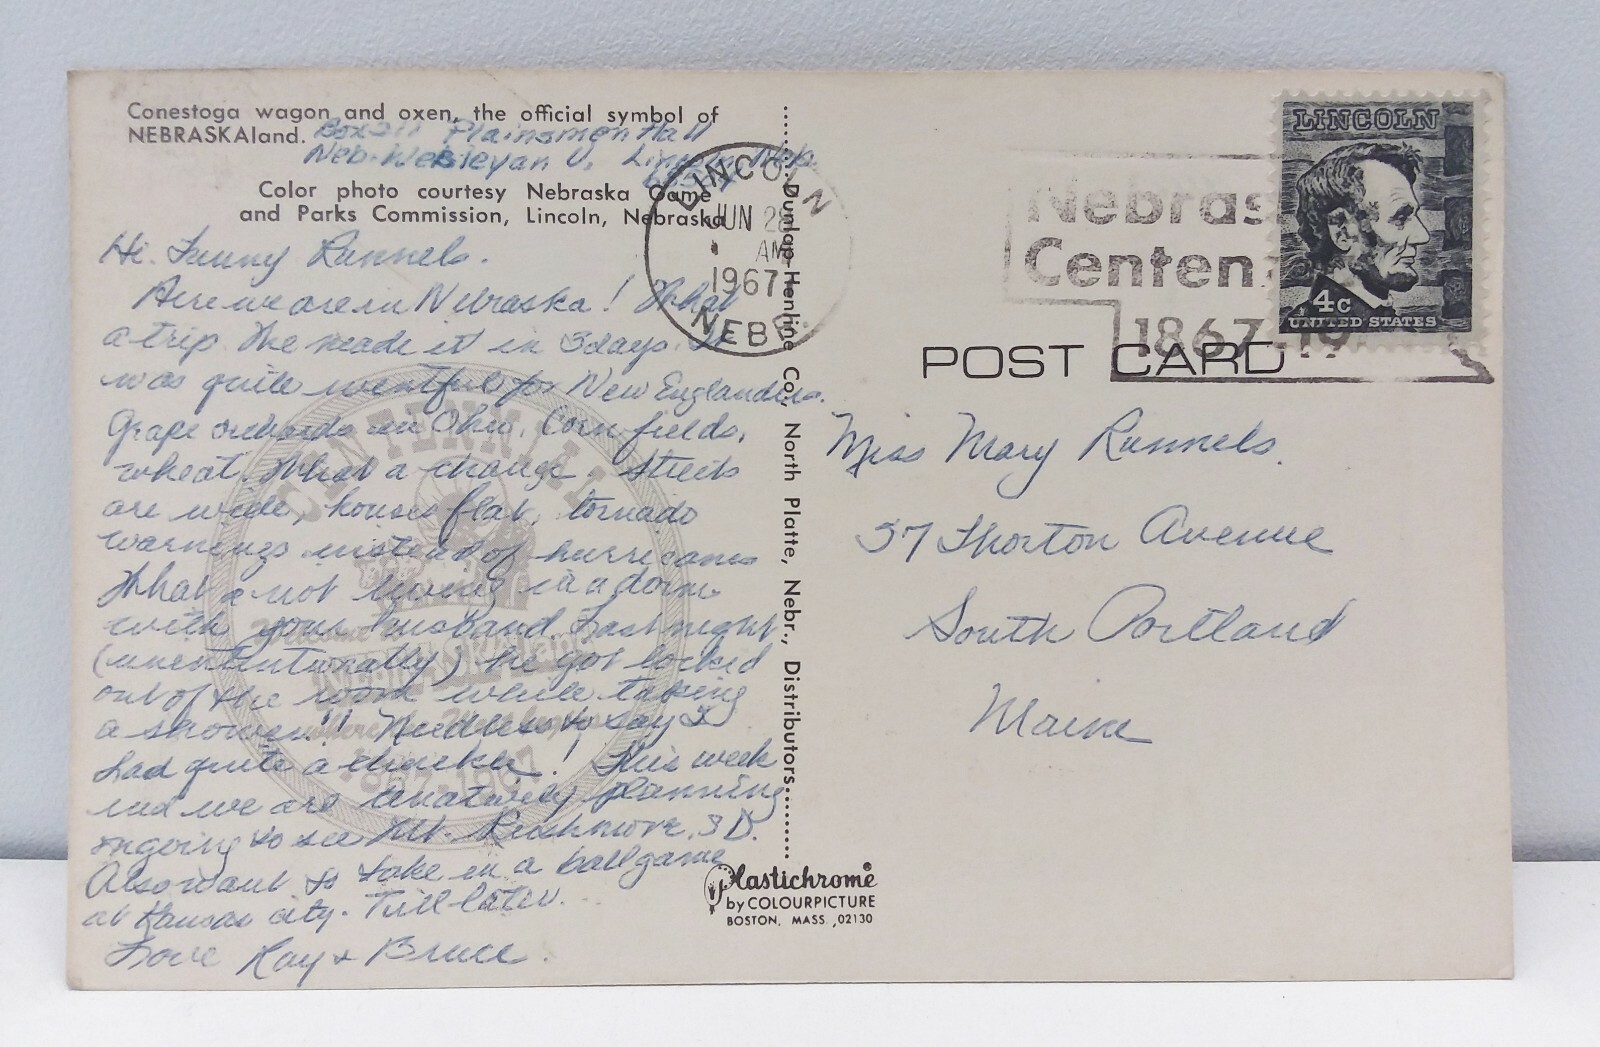 Conestoga wagon and oxen, the official symbol of
NEBRASKAland.
Box 211 Plainsman Hall
Neb. Wesleyan U, Lincoln, Neb.
Color photo courtesy Nebraska Game
and Parks Commission, Lincoln, Nebraska
Hi. Runnels.
Here we are in Nebraska! What
a trip. We made it in 3 days. It
was quite eventful for New Englanders.
Grape orchards in Ohio. Corn fields,
wheat. What a change. Streets
are wide, houses flat, tornado
warnings instead of hurricanes
What a living in a dorm
with your husband. Last night
(unintentionally) he got locked
out of the room while taking
a shower!! Needless to say I
had quite a chuckle! This week
end we are planning
on going to see Mt. Rushmore, S D.
Also want to take in a ball game
at Kansas city. Till later.
Love Kay & Bruce.
CENTENNIAL
Welcome to
NEBRASKAland
where the West begins
1867-1967
LINCOLN
JUN 28
AM
1967
NEBR
Dunlap-Henline Co., North Platte, Nebr., Distributors
Nebras
Centen
1867-19
LINCOLN
4c
UNITED STATES
POST CARD
Miss Mary Runnels.
37 Thorton Avenue
South Portland
Maine
Plastichrome
by COLOURPICTURE
BOSTON, MASS., 02130